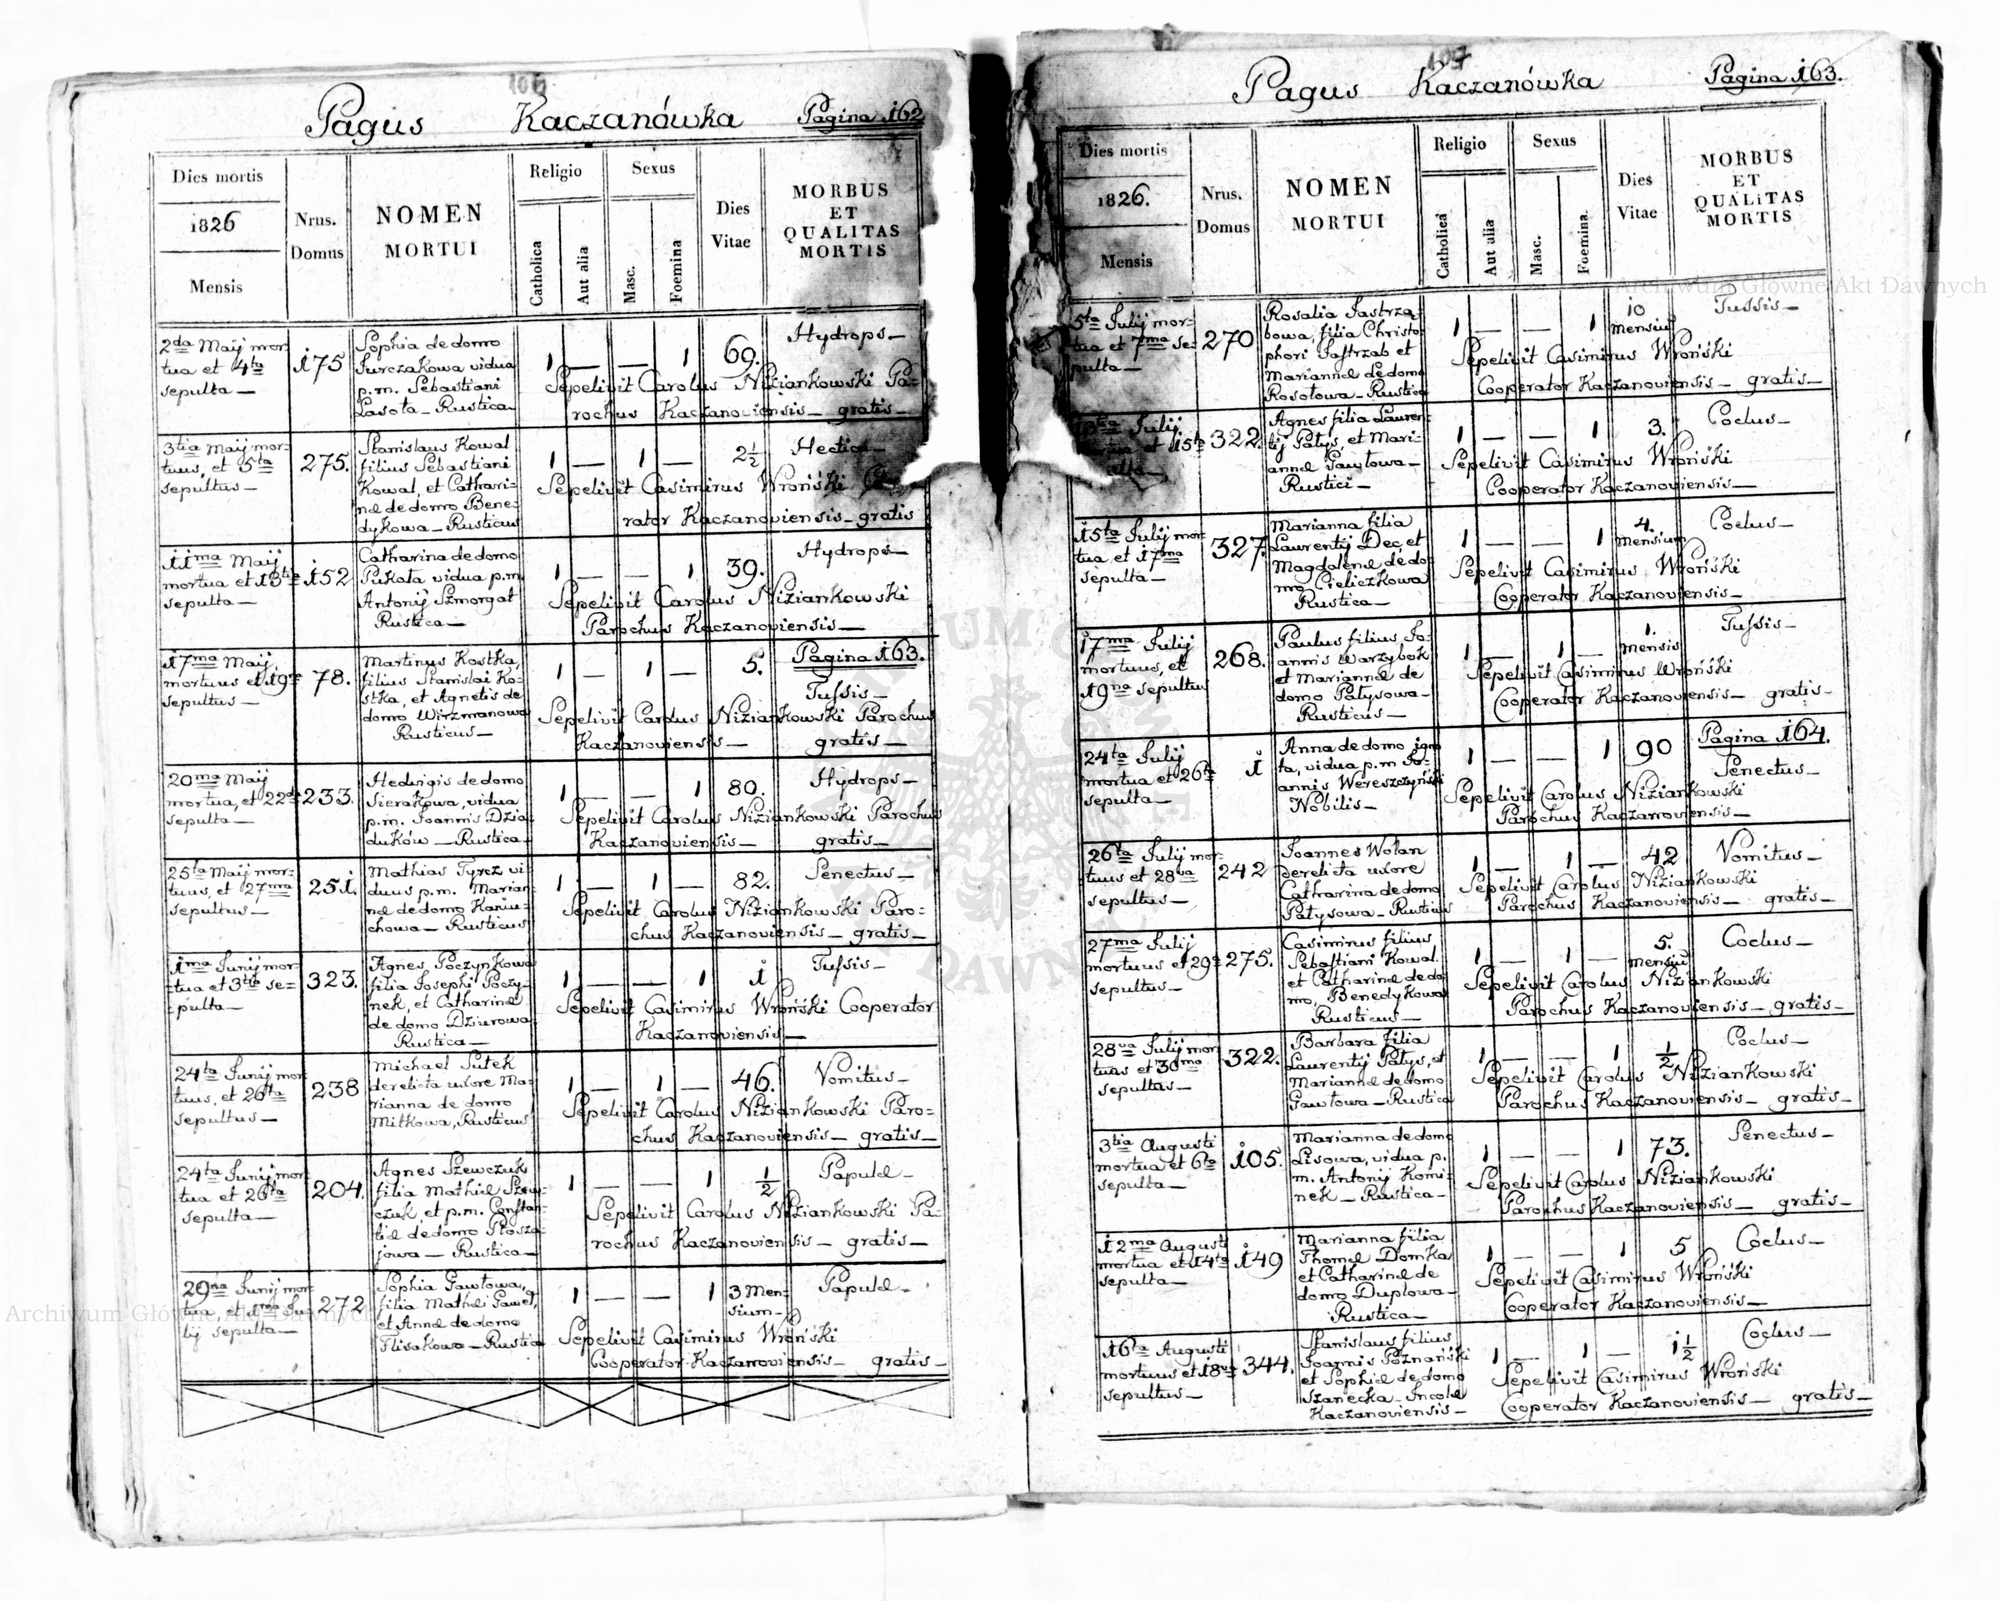 106
Pagus Kaczanówka Pagina 162
Dies mortis
1826
Mensis
Nrus.
Domus
NOMEN
MORTUI
Religio
Catholica
Aut alia
Sexus
Masc.
Foemina
Dies
Vitae
MORBUS
ET
QUALITAS
MORTIS
2da Maij mor-
tua et 4ta
sepulta—
175
Sophia de domo
Surczakowa vidua
p.m. Sebastiani
Lasota— Rustica—
1 — — 1 69. Hydrops—
Sepelivit Carolus Niziankowski Pa-
rochus Kaczanoviensis— gratis—
3tia Maij mor-
tuus, et 5ta
sepultus—
275.
Stanislaus Kowal
filius Sebastiani
Kowal, et Cathari-
næ de domo Bene-
dykowa— Rusticus
1 — 1 — 2½ Hectica—
Sepelivit Casimirus Wroński
rator Kaczanoviensis— gratis
11ma Maij
mortua et 13tia
sepulta—
152
Catharina de domo
Pukała vidua p.m.
Antonij Szmorgat
Rustica—
1 — — 1 39. Hydrops—
Sepelivit Carolus Niziankowski
Parochus Kaczanoviensis—
17ma Maij
mortuus et 19na
sepultus—
78.
Martinus Kostka,
filius Stanislai Ko-
stka, et Agnetis de
domo Wirzmanowa
Rusticus—
1 — 1 — 5. Pagina 163.
Tussis—
Sepelivit Carolus Niziankowski Parochus
Kaczanoviensis— gratis—
20ma Maij
mortua, et 22da
sepulta—
233.
Hedvigis de domo
Sierakowa, vidua
p.m. Joannis Dzia-
duków— Rustica—
1 — — 1 80. Hydrops—
Sepelivit Carolus Niziankowski Parochus
Kaczanoviensis— gratis—
25ta Maij mor-
tuus, et 27ma
sepultus—
251.
Mathias Tyrcz vi-
duus p.m. Marian-
næ de domo Kaniu-
chowa— Rusticus
1 — 1 — 82. Senectus—
Sepelivit Carolus Niziankowski Paro-
chus Kaczanoviensis— gratis—
1ma Junij mor-
tua et 3tia se-
pulta—
323.
Agnes Poczynkowa
filia Josephi Poczy-
nek, et Catharinæ
de domo Dziurowa
Rustica—
1 — — 1 1 Tussis—
Sepelivit Casimirus Wroński Cooperator
Kaczanoviensis—
24ta Junij mor-
tuus, et 26ta
sepultus—
238
Michael Sutek
derelicta uxore Ma-
rianna de domo
Mitkowa, Rusticus
1 — 1 — 46. Vomitus—
Sepelivit Carolus Niziankowski Paro-
chus Kaczanoviensis— gratis—
24ta Junij mor-
tua et 26ta
sepulta—
204.
Agnes Szewczuk
filia Mathiæ Szew-
czuk et p.m. Constan-
tiæ de domo Płosza-
jowa— Rustica—
1 — — 1 ½ Papulæ—
Sepelivit Carolus Niziankowski Pa-
rochus Kaczanoviensis— gratis—
29na Junij mor-
tua, et 1ma Ju-
lij sepulta—
272
Sophia Gawłowa,
filia Mathei Gaweł,
et Annæ de domo
Flisakowa— Rustica
1 — — 1 3 Men-
sium— Papulæ—
Sepelivit Casimirus Wroński
Cooperator Kaczanoviensis— gratis—
107
Pagus Kaczanówka Pagina 163.
Dies mortis
1826.
Mensis
Nrus.
Domus
NOMEN
MORTUI
Religio
Catholica
Aut alia
Sexus
Masc.
Foemina.
Dies
Vitae
MORBUS
ET
QUALITAS
MORTIS
5ta Julij mor-
tua et 7ma se-
pulta—
270
Rosalia Jastrzą-
bowa, filia Christo-
phori Jastrzab et
Mariannæ de domo
Rosołowa— Rustica
1 — — 1 10
Mensium Tussis—
Sepelivit Casimirus Wroński
Cooperator Kaczanoviensis— gratis—
13tia Julij
et 15ta
322.
Agnes filia Lauren-
tij Pałys, et Mari-
annæ Gawłowa—
Rustici—
1 — — 1 3. Coclus—
Sepelivit Casimirus Wroński
Cooperator Kaczanoviensis—
15ta Julij mor-
tua, et 17ma
sepulta—
327.
Marianna filia
Laurentij Dec, et
Magdalenæ de do-
mo Cieliczkowa
Rustica—
1 — — 1 4.
Mensium Coclus—
Sepelivit Casimirus Wroński
Cooperator Kaczanoviensis—
17ma Julij
mortuus, et
19na sepultus
268.
Paulus filius Jo-
annis Warzybok
et Mariannæ de
domo Pałysowa—
Rusticus—
1 — 1 — 1.
Mensis Tussis—
Sepelivit Casimirus Wroński
Cooperator Kaczanoviensis— gratis—
24ta Julij
mortua et 26ta
sepulta—
1
Anna de domo igno-
ta, vidua p.m Jo-
annis Wereszczyński
Nobilis—
1 — — 1 90 Pagina 164.
Senectus—
Sepelivit Carolus Niziankowski
Parochus Kaczanoviensis—
26ta Julij mor-
tuus et 28va
sepultus—
242
Joannes Wolan
derelicta uxore
Catharina de domo
Pałysowa— Rusticus
1 — 1 — 42 Vomitus—
Sepelivit Carolus Niziankowski
Parochus Kaczanoviensis— gratis—
27ma Julij
mortuus et 29na
sepultus—
275.
Casimirus filius
Sebastiani Kowal
et Catharinæ de do-
mo, Benedykowa
Rusticus—
1 — 1 — 5.
mensium Coclus—
Sepelivit Carolus Niziankowski
Parochus Kaczanoviensis— gratis—
28va Julij mor-
tuas et 30ma
sepultas—
322.
Barbara filia
Laurentij Pałys, et
Mariannæ de domo
Gawłowa— Rustica
1 — — 1 ½ Coclus—
Sepelivit Carolus Niziankowski
Parochus Kaczanoviensis— gratis—
3tia Augusti
mortua et 6ta
sepulta—
105.
Marianna de domo
Lisowa, vidua p.
m. Antonij Komi-
nek— Rustica—
1 — — 1 73. Senectus—
Sepelivit Carolus Niziankowski
Parochus Kaczanoviensis— gratis—
12ma Augusti
mortua et 14ta
sepulta—
149
Marianna filia
Thomæ Domka
et Catharinæ de
domo Dupłowa—
Rustica—
1 — — 1 5 Coclus—
Sepelivit Casimirus Wroński
Cooperator Kaczanoviensis—
16ta Augusti
mortuus et 18va
sepultus—
344.
Stanislaus filius
Joannis Poznański
et Sophiæ de domo
Szanecka— Incolæ
Kaczanoviensis—
1 — 1 — 1½ Coclus—
Sepelivit Casimirus Wroński
Cooperator Kaczanoviensis— gratis—
Archiwum Główne Akt Dawnych
Archiwum Główne Akt Dawnych